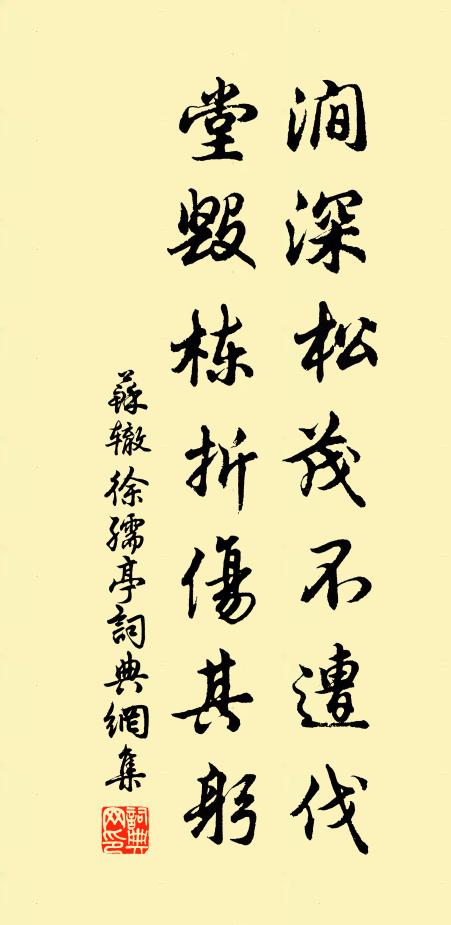 澗深松茂不遭伐
堂毀棟折傷其躬
蘇轍徐孺亭詞典網集
詞典网印